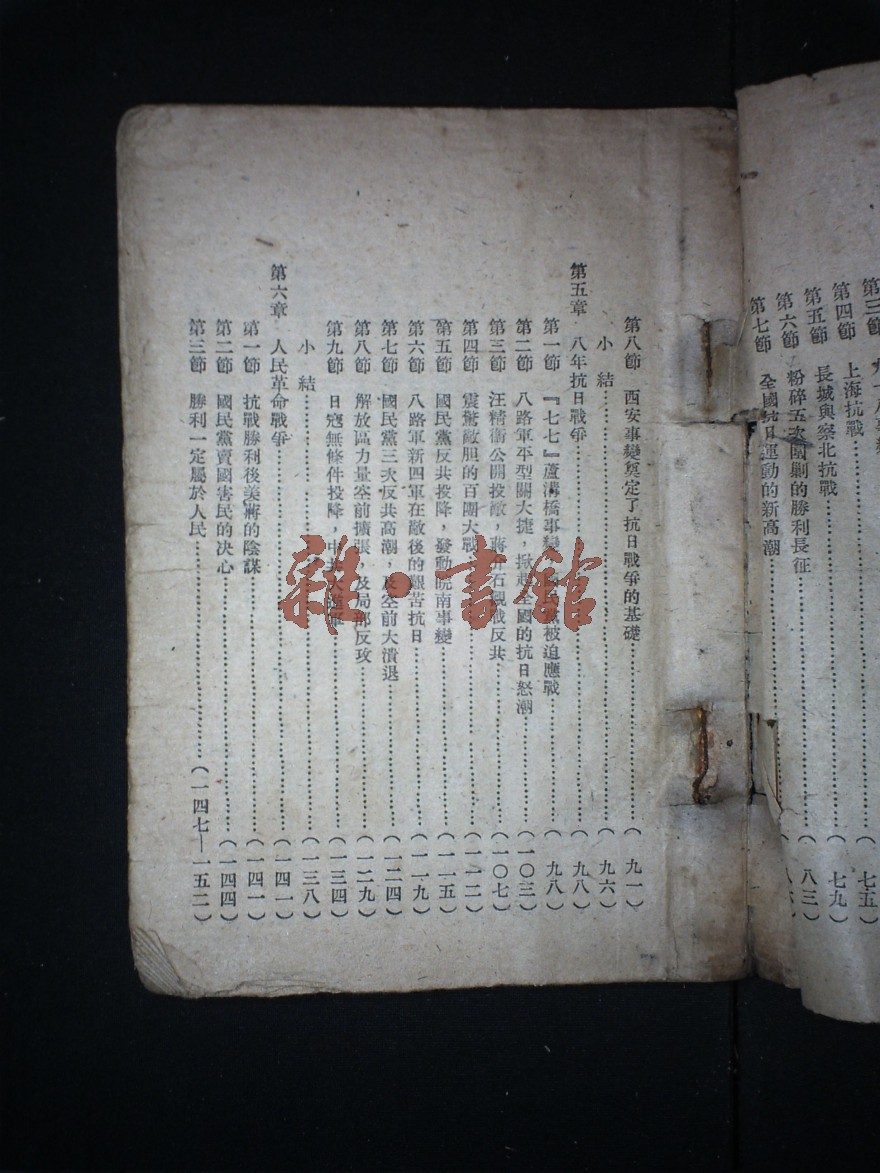 第三節
第四節 上海抗戰 (七五)
第五節 長城與察北抗戰 (七九)
第六節 粉碎五次圍剿的勝利長征 (八三)
第七節 全國抗日運動的新高潮
第八節 西安事變奠定了抗日戰爭的基礎 (九一)
小結 (九六)
第五章 八年抗日戰爭 (九八)
第一節 『七七』蘆溝橋事變 被迫應戰 (九八)
第二節 八路軍平型關大捷，掀起全國的抗日怒潮 (一〇三)
第三節 汪精衛公開投敵，蔣介石觀戰反共 (一〇七)
第四節 震驚敵胆的百團大戰 (一一二)
第五節 國民黨反共投降，發動皖南事變 (一一五)
第六節 八路軍新四軍在敵後的艱苦抗日 (一一九)
第七節 國民黨三次反共高潮，及空前大潰退 (一二四)
第八節 解放區力量空前擴張，及局部反攻 (一二九)
第九節 日寇無條件投降，中共大進軍 (一三四)
小結 (一三八)
第六章 人民革命戰爭 (一四一)
第一節 抗戰勝利後美蔣的陰謀 (一四一)
第二節 國民黨賣國害民的决心 (一四四)
第三節 勝利一定屬於人民 (一四七—一五二)
雜·書館